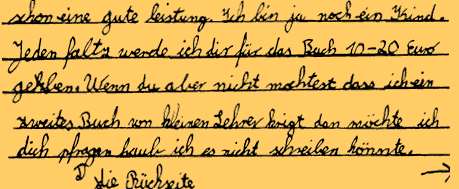 schon eine gute leistung. Ich bin ja noch ein Kind.
Jeden faltz werde ich dir für das Buch 10-20 Euro
gehben. Wenn du aber nicht mochtest dass ich ein
zweites Buch von kleinen Lehrer krigt dan möchte ich
dich pfragen haub ich es nicht schreiben könnte.
Die Rückseite →